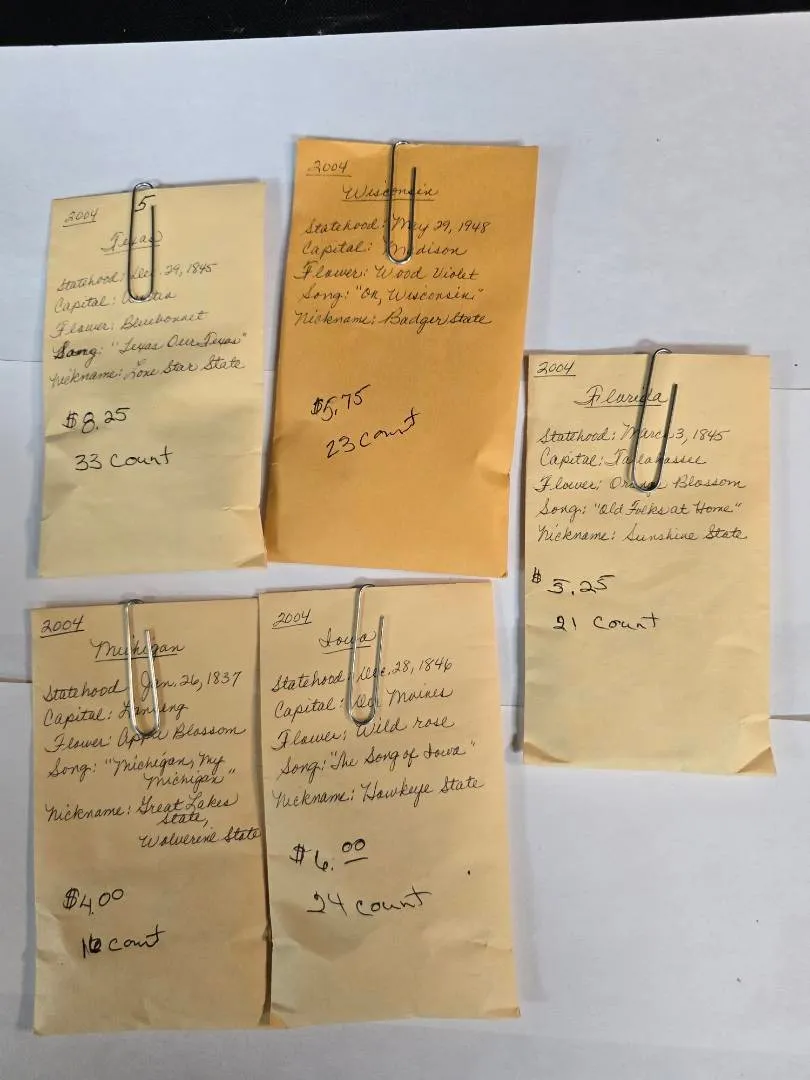 2004
5
Texas
Statehood: Dec. 29, 1845
Capital: Austin
Flower: Bluebonnet
Song: "Texas Our Texas"
Nickname: Lone Star State
$8.25
33 count
2004
Wisconsin
Statehood: May 29, 1948
Capital: Madison
Flower: Wood Violet
Song: "On, Wisconsin"
Nickname: Badger State
$5.75
23 count
2004
Florida
Statehood: March 3, 1845
Capital: Tallahassee
Flower: Orange Blossom
Song: "Old Folks at Home"
Nickname: Sunshine State
$5.25
21 count
2004
Michigan
Statehood Jan. 26, 1837
Capital: Lansing
Flower: Apple Blossom
Song: "Michigan, My
Michigan"
Nickname: Great Lakes
State,
Wolverine State
$4.00
16 count
2004
Iowa
Statehood: Dec. 28, 1846
Capital: Des Moines
Flower: Wild rose
Song: "The Song of Iowa"
Nickname: Hawkeye State
$6.00
24 count